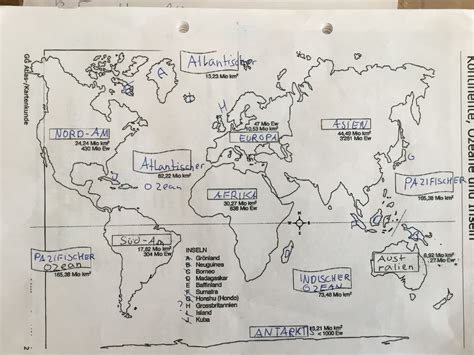 GG Atlas-/Kartenkunde
Kontinente, Ozeane und Inseln
Atlantischer
13,23 Mio km²
A
NORD-AM
24,24 Mio km²
430 Mio Ew
H
47 Mio Ew
10,53 Mio km²
EUROPA
ASIEN
44,49 Mio km²
Atlantischer
Ozean
82,22 Mio km²
AFRIKA
30,27 Mio km²
PAZIFISCHER
165,38 Mio km²
PAZIFISCHER
Ozean
165,38 Mio km²
SÜD-Am
17,82 Mio km²
304 Mio Ew
INSELN
A Grönland
B Neuguinea
C Borneo
D Madagaskar
E Baffinland
F Sumatra
G Honshu (Hondo)
H Grossbritannien
I Island
J Kuba
INDISCHER
OZEAN
73,48 Mio km²
Aust
ralien
ANTARKTIS
13,21 Mio km²
< 1000 Ew
2